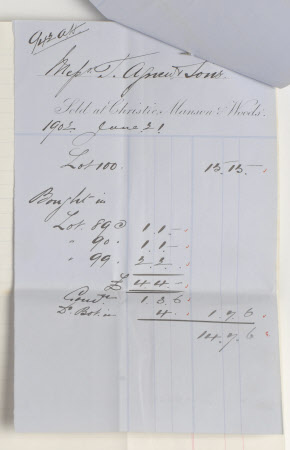 Messrs. T. Agnew & Sons.
Sold at Christie, Manson & Woods.
1902 June 21
Lot 100. 15. 15. -
Bought in
Lot 89 @ 1. 1. -
" 90. 1. 1. -
" 99. 2. 2. -
£ 4. 4. -
1. 3. 6
Do. Bot. in 4. 1. 7. 6
14. 7. 6